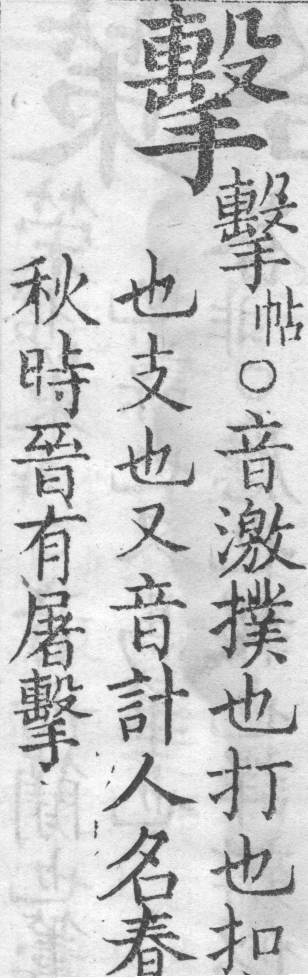 擊
擊帖○音激撲也打也扣
也支也又音計人名春
秋時晉有屠擊